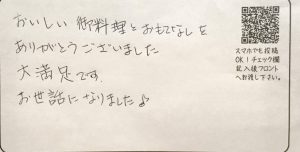 おいしい御料理とおもてなしを
ありがとうございました
大満足です.
お世話になりました♪
スマホでも投稿
OK！チェック欄
記入後フロント
へお渡し下さい。